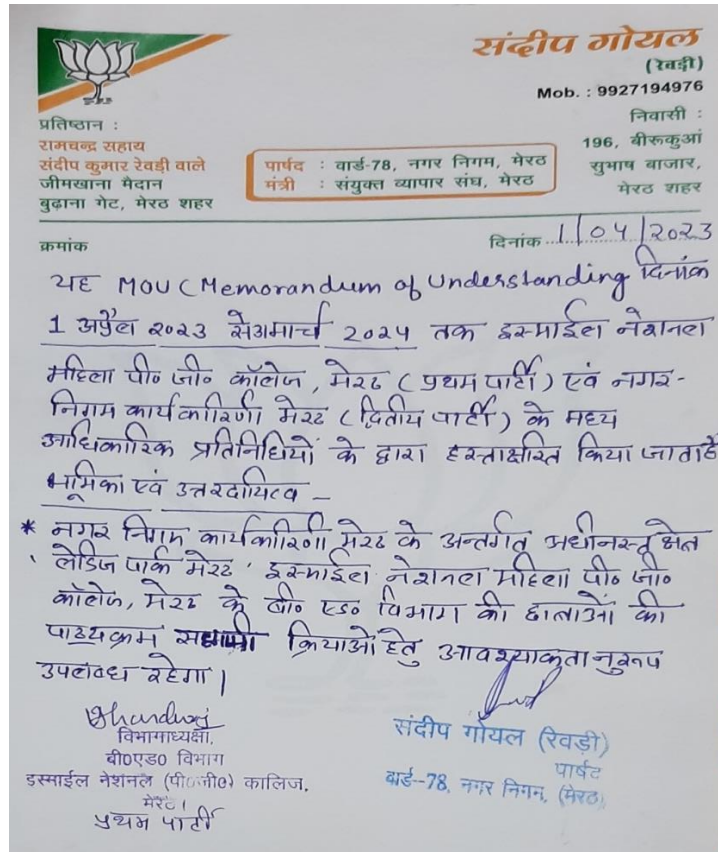 संदीप गोयल
(रेवड़ी)
Mob. : 9927194976
प्रतिष्ठान :
रामचन्द्र सहाय
संदीप कुमार रेवड़ी वाले
जीमखाना मैदान
बुढ़ाना गेट, मेरठ शहर
पार्षद : वार्ड-78, नगर निगम, मेरठ
मंत्री : संयुक्त व्यापार संघ, मेरठ
निवासी :
196, बीरूकुआं
सुभाष बाजार,
मेरठ शहर
क्रमांक
दिनांक 1/04/2023
यह MOU (Memorandum of Understanding दिनांक
1 अप्रैल 2023 से मार्च 2024 तक इस्माईल नेशनल
महिला पी० जी० कॉलेज, मेरठ (प्रथम पार्टी) एवं नगर-
निगम कार्यकारिणी मेरठ (द्वितीय पार्टी) के मध्य
आधिकारिक प्रतिनिधियों के द्वारा हस्ताक्षरित किया जाता है
भूमिका एवं उत्तरदायित्व –
* नगर निगम कार्यकारिणी मेरठ के अन्तर्गत अधीनस्त क्षेत्र
' लेडिज पार्क मेरठ ' इस्माईल नेशनल महिला पी० जी०
कॉलेज, मेरठ के बी० एड० विभाग की छात्राओं की
पाठ्यक्रम क्रियाओं हेतु आवश्याकतानुरूप
उपलब्ध रहेगा।
Bhardwaj
विभागाध्यक्षा,
बी०एड० विभाग
इस्माईल नेशनल (पी०जी०) कालिज,
मेरठ।
प्रथम पार्टी
संदीप गोयल (रेवड़ी)
पार्षद
वार्ड-78, नगर निगम, (मेरठ)